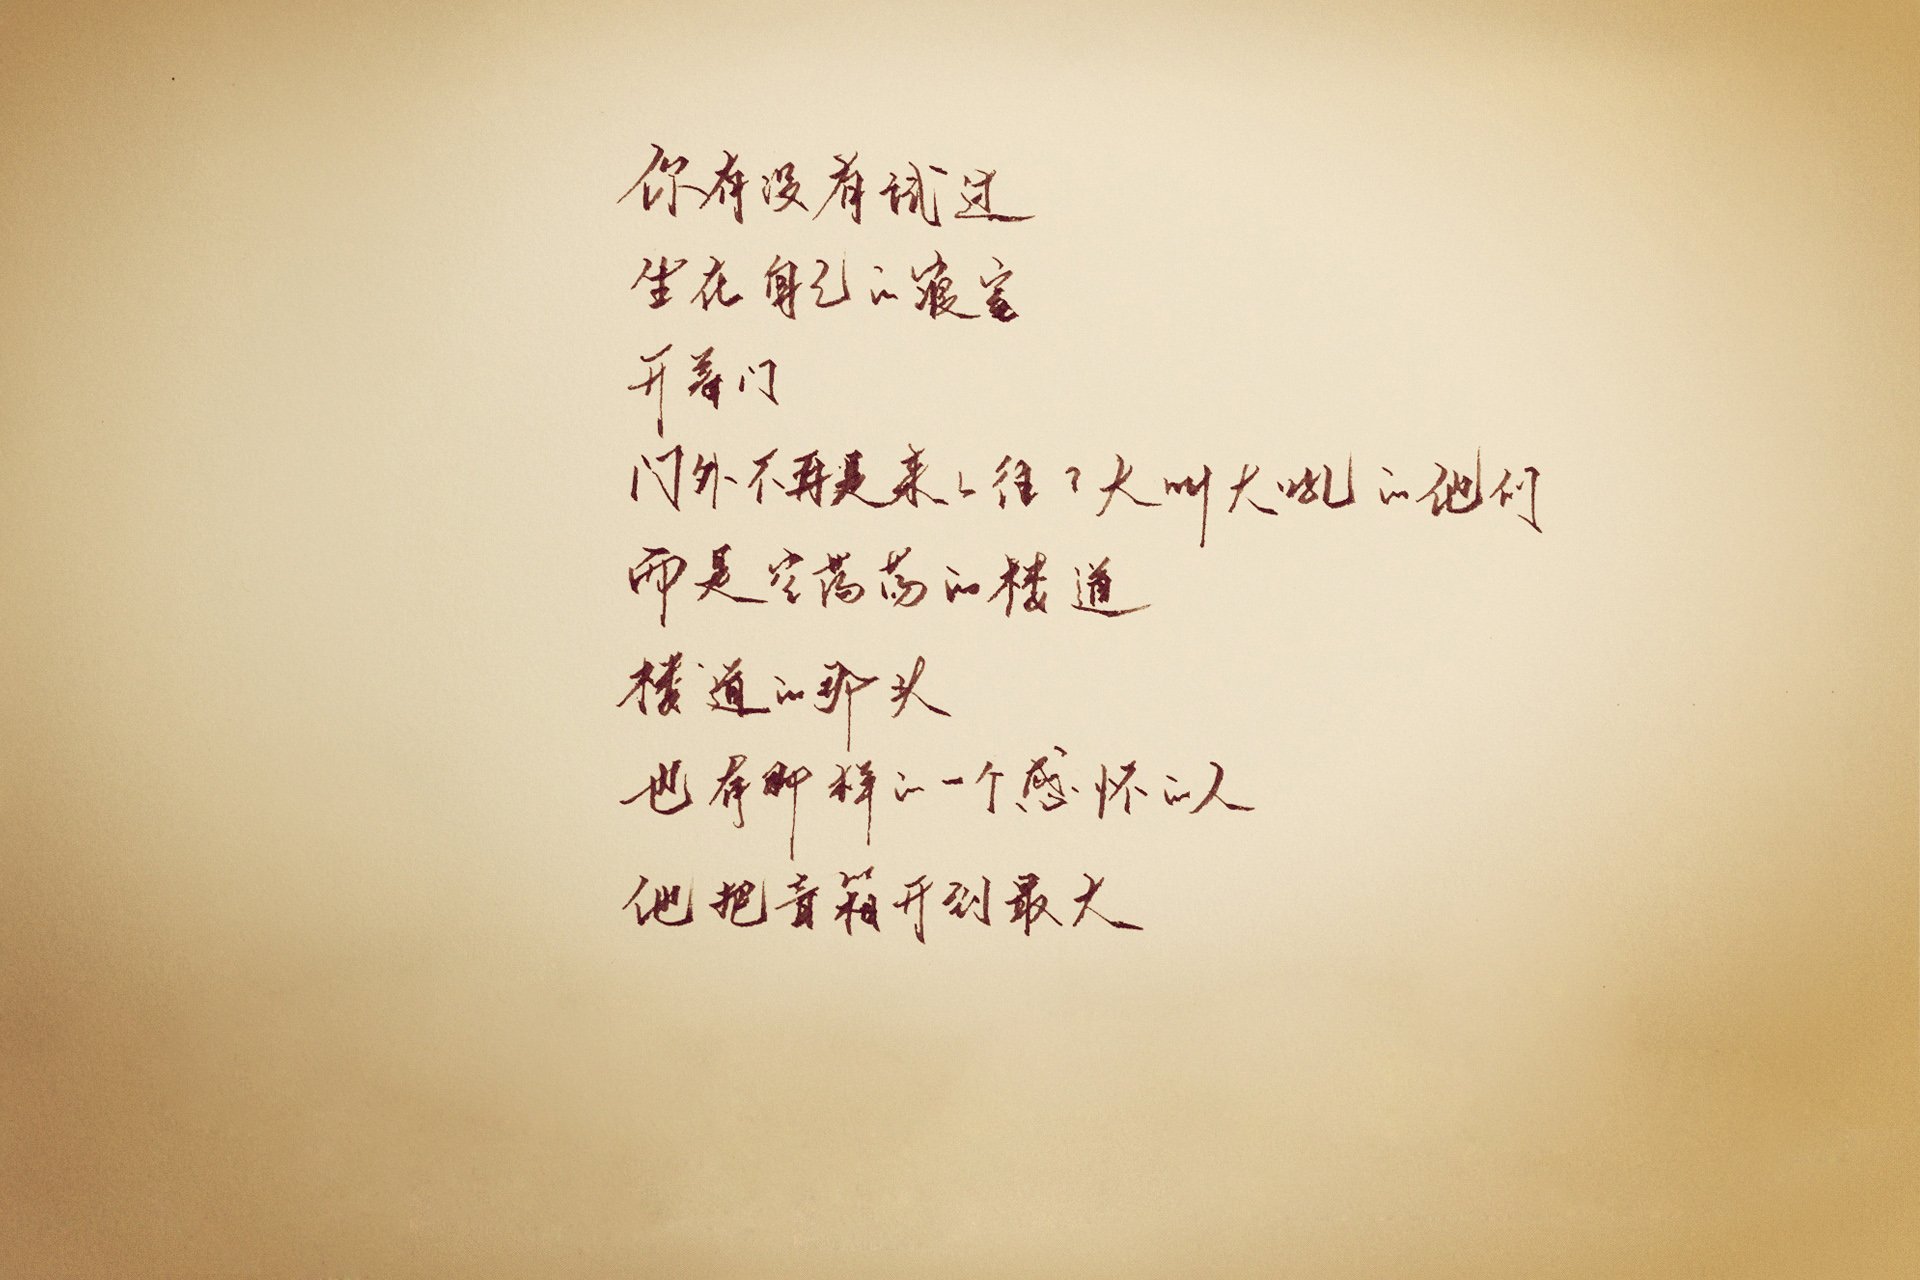 你有没有试过
坐在自己的寝室
开着门
门外不再是来来往往大叫大吼的他们
而是空荡荡的楼道
楼道的那头
也有那样的一个感怀的人
他把音箱开到最大